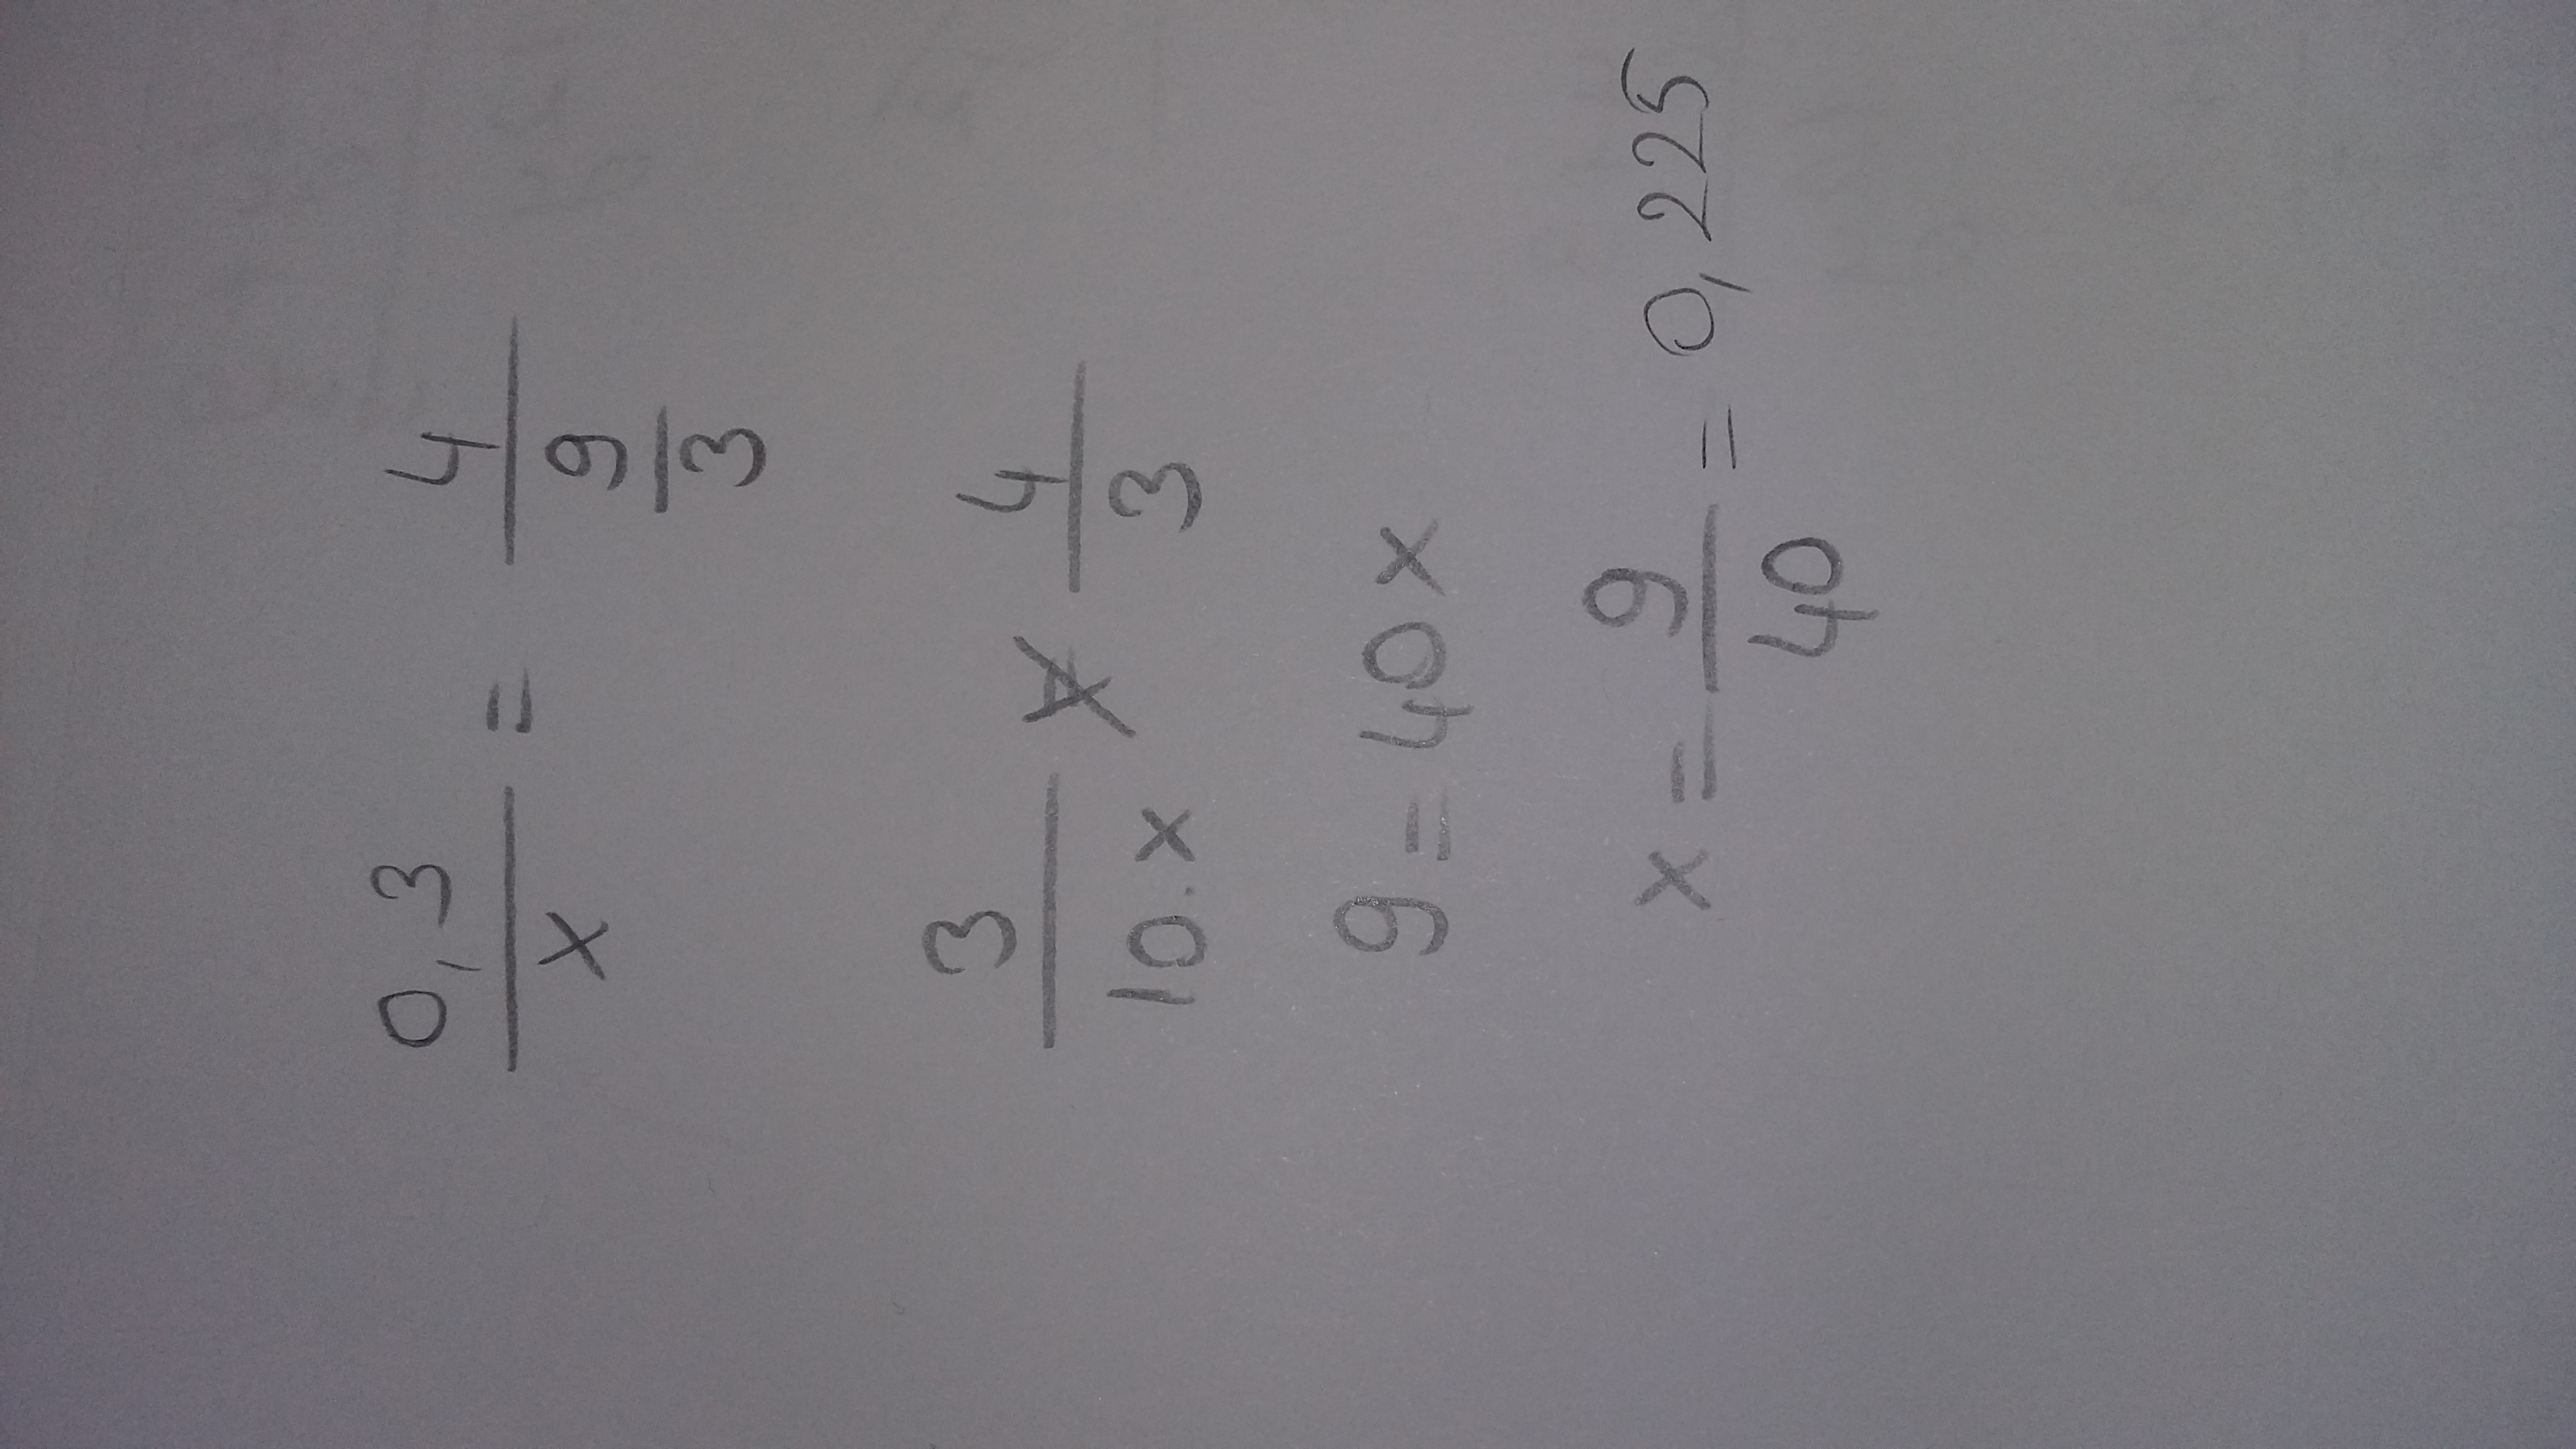 0,3 / x = 4 / 9/3
3 / 10.x × 4 / 3
9 = 40x
x = 9 / 40 = 0,225